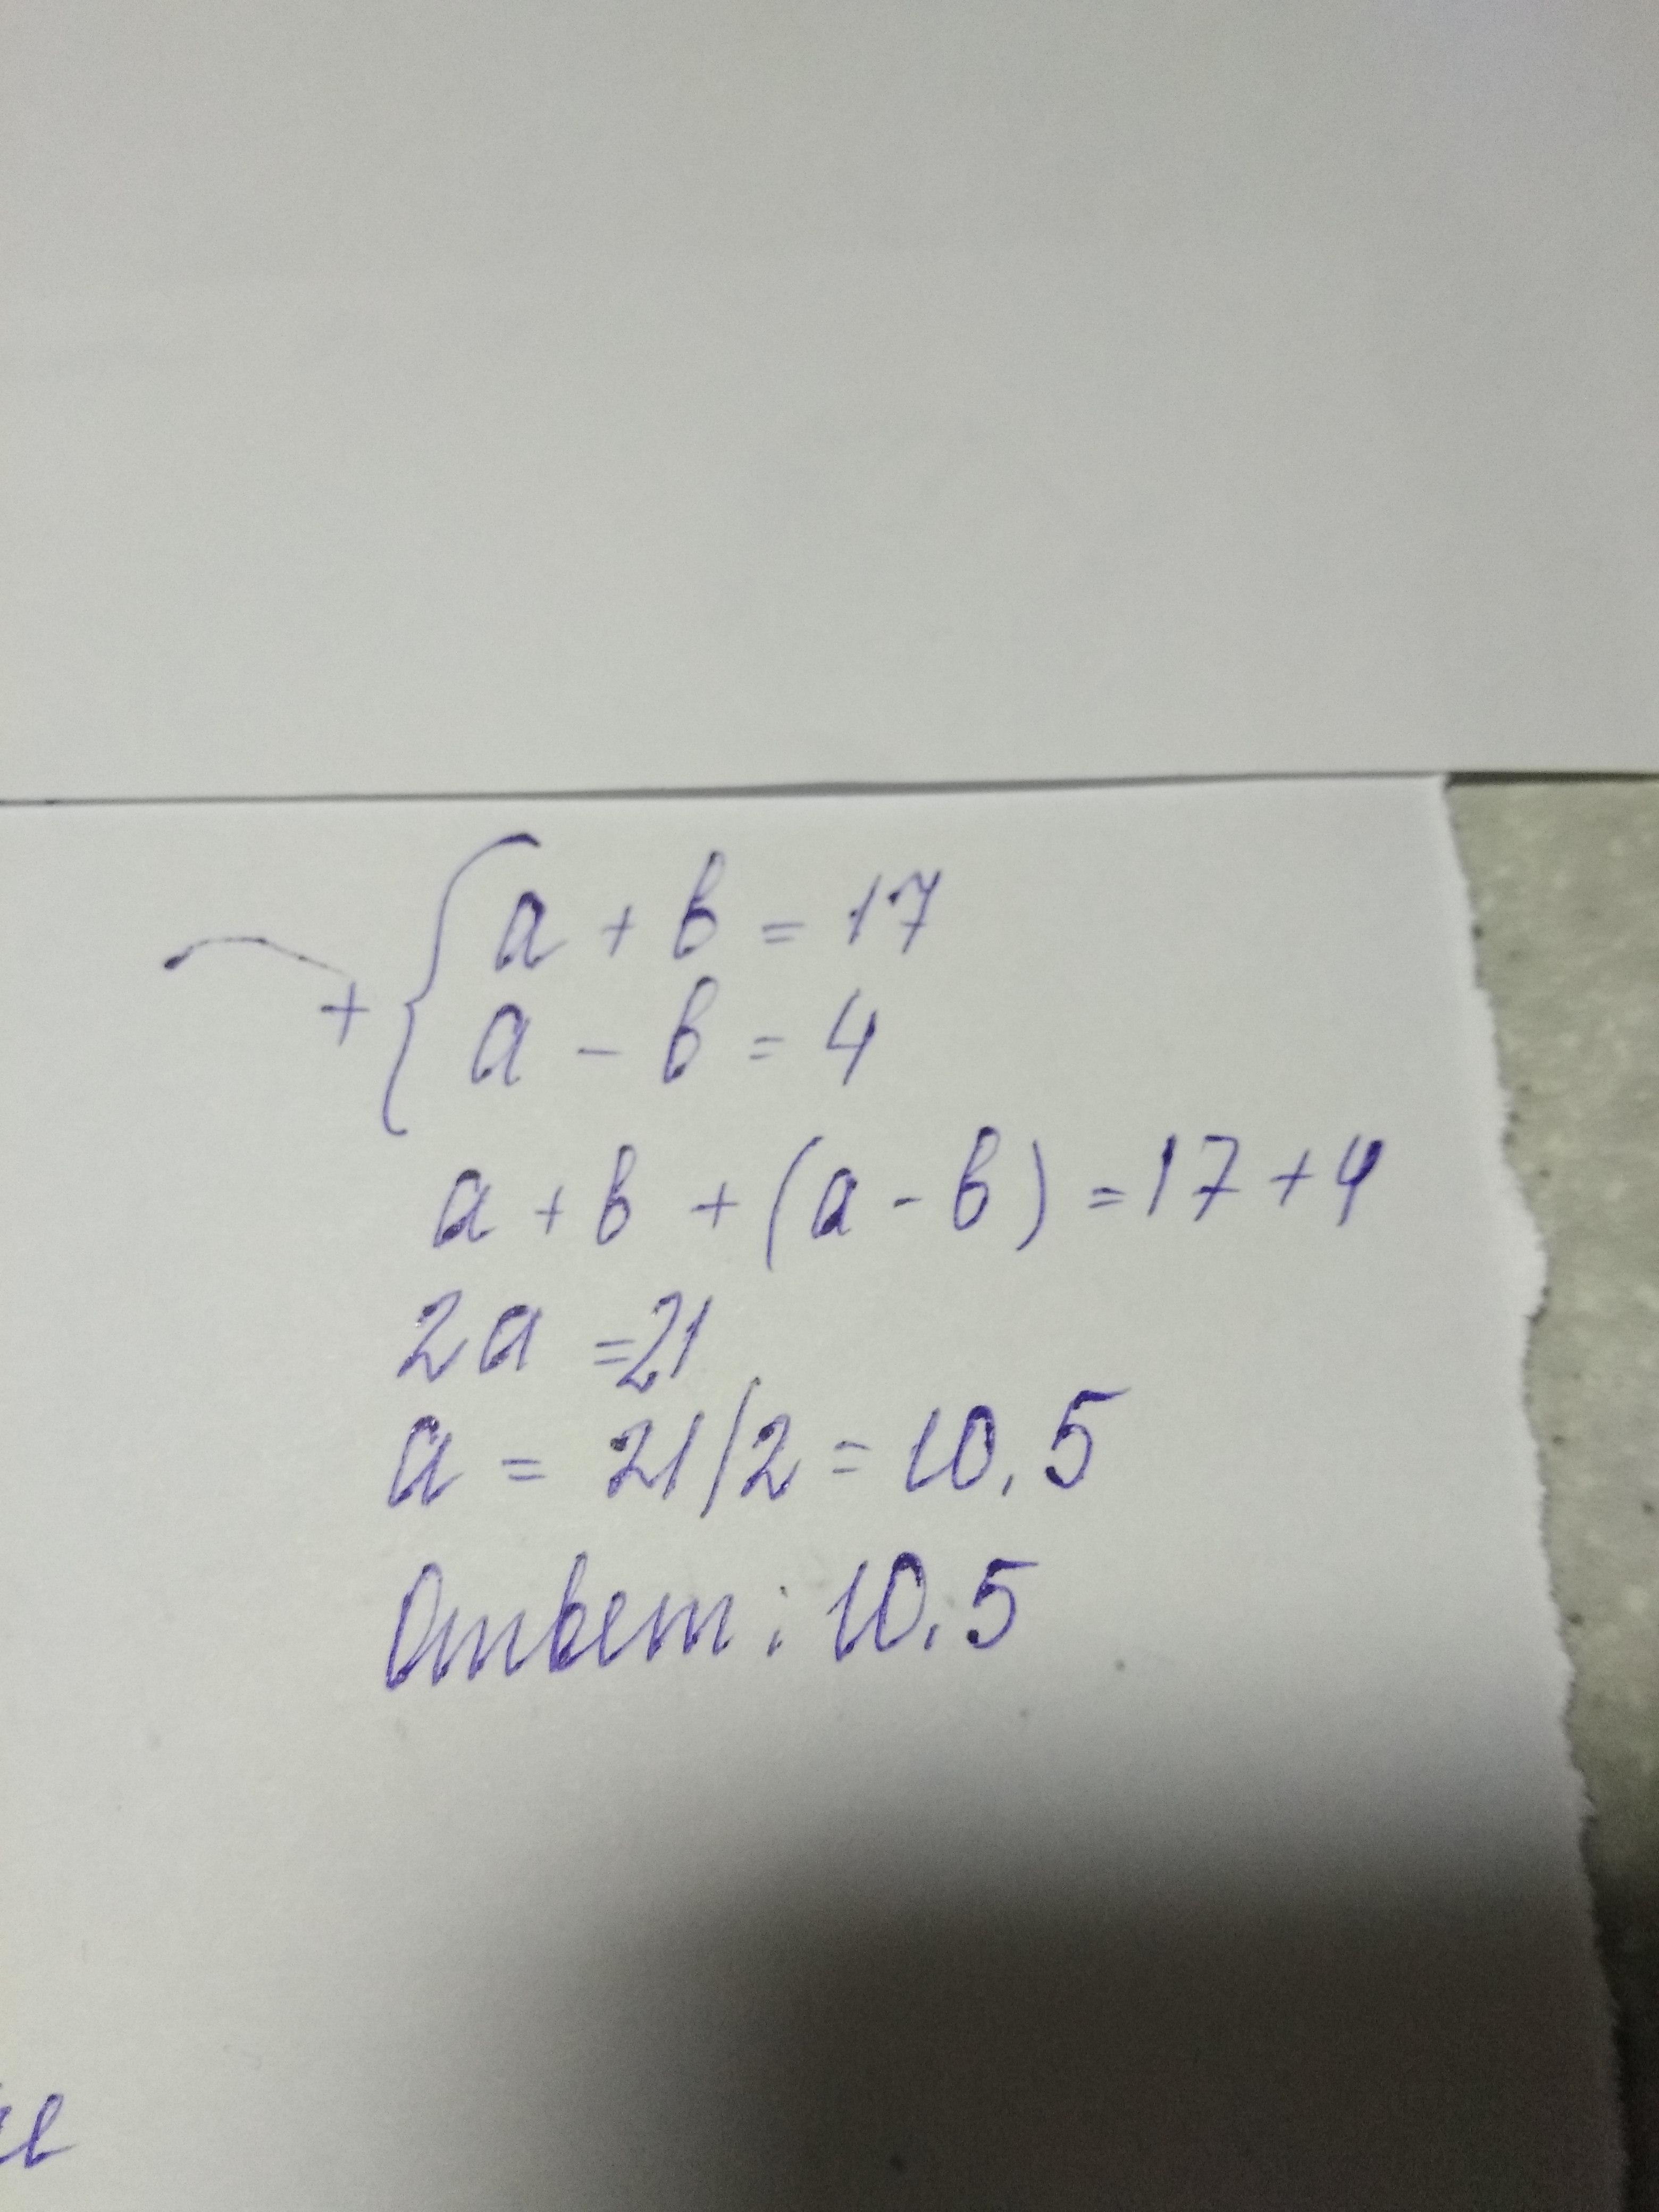 a + b = 17
+
a - b = 4
a + b + (a - b) = 17 + 4
2a = 21
a = 21/2 = 10.5
Ответ: 10.5